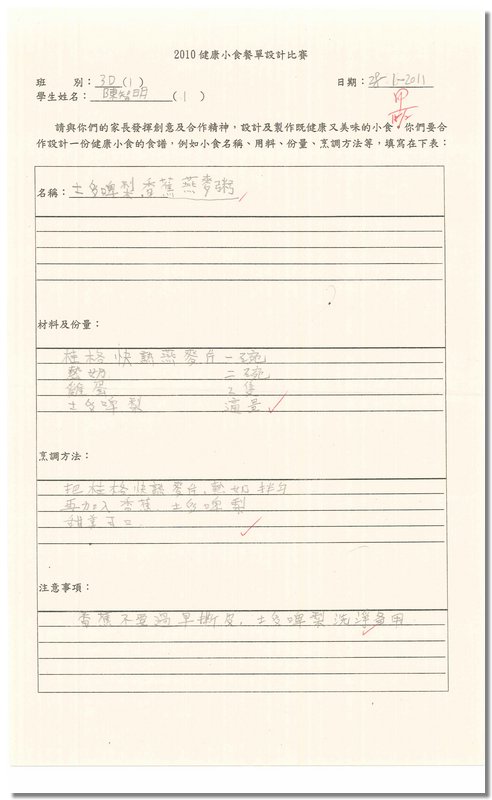 2010健康小食餐單設計比賽
班　別：3D(1)
日期：28-1-2011
學生姓名：陳智明(1)
甲
請與你們的家長發揮創意及合作精神，設計及製作既健康又美味的小食。你們要合
作設計一份健康小食的食譜，例如小食名稱、用料、份量、烹調方法等，填寫在下表：
名稱：士多啤梨香蕉燕麥粥
材料及份量：
桂格快熟燕麥片 一碗
熱奶 二碗
雞蛋 2隻
士多啤梨 適量
烹調方法：
把桂格快熟麥片，熱奶拌勻
再加入香蕉，士多啤梨
甜美可口
注意事項：
香蕉不要過早撕皮，士多啤梨洗淨備用